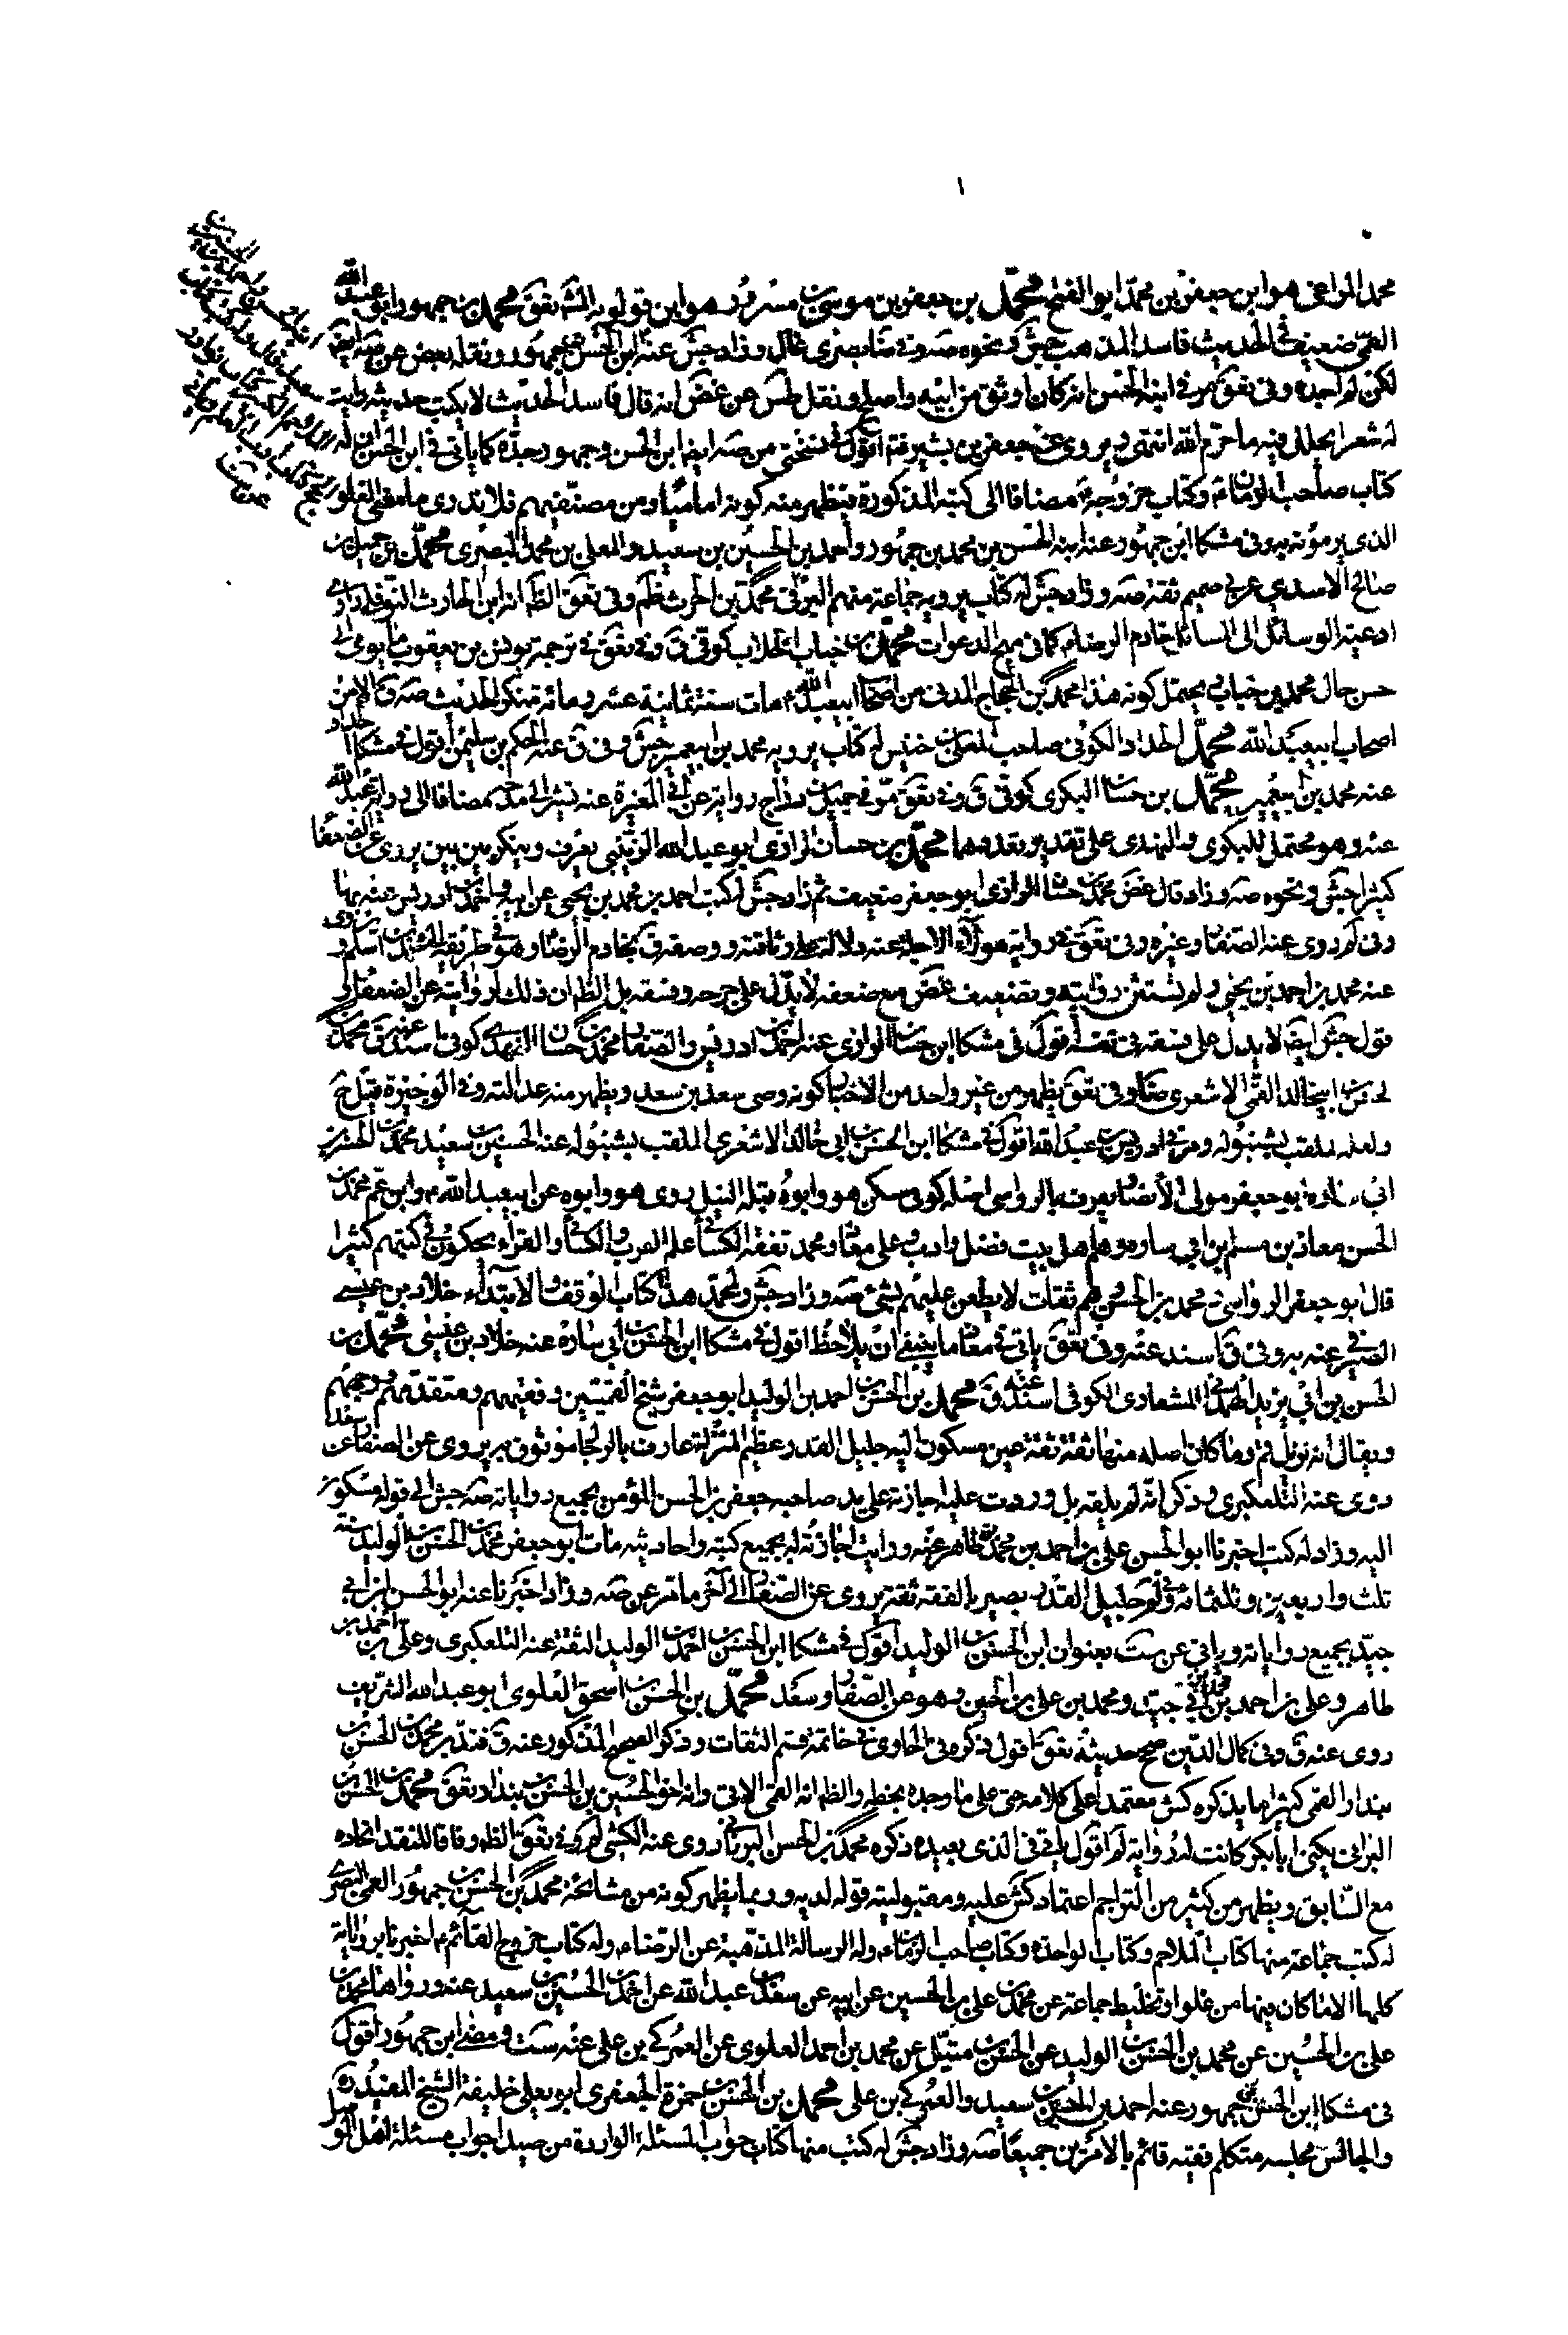 محمد المراغى هو ابن جعفر بن محمد ابو الفتح محمد بن جعفر بن موسى بن مسرور هو ابن قولويه تعق محمد بن جمهور ابو عبد الله
العمى ضعيف في الحديث فاسد المذهب جش ونحوه صه وفي ضا بصرى غال وزاد جش عنه ابن الحسن بن جمهور ونقله بعض عن صه ايضا
لكن لم اجده وفى تعق مر في ابنه الحسن انه كان اوثق من ابيه واصلح ونقل طس عن غض انه قال فاسد الحديث لا يكتب حديثه رايت
له شعرا يحلل فيه ما حرم الله انتهى ويروى عنه جعفر بن بشير فتم اقول في نسختى من صه ايضا ابن الحسن وجمهور جده كما ياتى في ابن الحسن
كتاب صاحب الزمان ع وكتاب خروجه ع مضافا الى كتبه المذكورة فيظهر منه كونه اماميا ومن مصنفيهم فلا ندرى ما معنى الغلو
الذى يرمونه به وفى مشكا ابن جمهور عنه ابنه الحسن بن محمد بن جمهور واحمد بن الحسين بن سعيد والمعلى بن محمد البصرى محمد بن جميل بن
صالح الاسدى عربى صميم ثقة صه وزاد جش له كتاب يرويه جماعة منهم البرقى محمد بن الحرث ظم وفى تعق الظ انه ابن الحارث النوفلى راوى
ادعية الوسائل الى المسائل خادم الرضا ع كما في مهج الدعوات محمد بن حباب الجلاب كوفى ق وفى تعق في ترجمة يونس بن يعقوب ما يومى الى
حسن حال محمد بن حباب يحتمل كونه هذا محمد بن الحجاج المدنى من اصحاب ابى عبد الله ع مات سنة ثمانية عشر ومائة منكر الحديث صه ق الا من
اصحاب ابى عبد الله محمد الحداد الكوفى صاحب المعلى بن خنيس له كتاب يرويه محمد بن ابى عمير جش وفى ق عنه الحكم بن سليمن اقول في مشكا الحداد
عنه محمد بن ابى عمير محمد بن حسان البكرى كوفى ق وفى تعق مر في جميل بن دراج رواية عن ابى المغيرة عنه تشير الى مدحه مضافا الى رواية عبد الله
عنه وهو محتمل للبكرى والنهدى على تقدير تعددهما محمد بن حسان الرازى ابو عبد الله الزينبى يعرف وينكر بين بين يروى عن الضعفاء
كثيرا جش ونحوه صه وزاد قال غض محمد بن حسان الرازى ابو جعفر ضعيف ثم زاد جش له كتب احمد بن محمد بن يحيى عن ابيه واحمد بن ادريس عنه بها
وفى لم روى عنه الصفار وغيره وفى تعق في رواية هولاء الاجلة عنه دلالة على وثاقته ووصفه ق بخادم الرضا ع وهو في طريقه الى محمد بن اسلم وروى
عنه محمد بن احمد بن يحيى ولم يستثن روايته وتضعيف غض مع ضعفه لا يدل على جرحه وفسقه بل الظ ان ذلك لروايته عن الضعفاء الى
قول جش ايضا لا يدل على فسقه في نفسه اقول في مشكا ابن حسان الرازى عنه احمد بن ادريس والصفار محمد بن حسان النهدى كوفى اسند عنه ق محمد بن
الحسن بن ابى خالد القمى الاشعرى ضا وفى تعق يظهر من غير واحد من الاخبار كونه وصى سعد بن سعد ويظهر منه عدالته وفى الوجيزة قيل ح
ولعله الملقب بشنبوله ومر في ادريس بن عبد الله اقول في مشكا ابن الحسن بن ابى خالد الاشعرى الملقب بشنبوله عنه الحسين بن سعيد محمد بن الحسن بن
ابى سارة ابو جعفر مولى الانصار يعرف بالرواسى اصله كوفى سكن هو وابوه قبله النيل روى هو وابوه عن ابى عبد الله ع وابن عم محمد بن
الحسن معاذ بن مسلم بن ابى سارة وهم اهل بيت فضل وادب وعلى معاذ ومحمد تفقه الكسائى علم العرب والكسائى والفراء يحكون في كتبهم كثيرا
قال ابو جعفر الرواسى محمد بن الحسن وهم ثقات لا يطعن عليهم بشئ صه وزاد جش ولمحمد هذا كتاب الوقف والابتداء خلاد بن عيسى
الصيرفى عنه به وفى ق اسند عنه وفى تعق ياتى في معاذ ما ينبغى ان يلاحظ اقول في مشكا ابن الحسن بن ابى سارة عنه خلاد بن عيسى محمد بن
الحسن بن ابى يزيد الهمدانى المشعارى الكوفى اسند عنه ق محمد بن الحسن بن احمد بن الوليد ابو جعفر شيخ القميين وفقيههم ومتقدمهم ووجههم
ويقال انه نزيل قم وما كان اصله منها ثقة ثقة عين مسكون اليه جليل القدر عظيم المنزلة عارف بالرجال موثوق به يروى عن الصفار وسعد
روى عنه التلعكبرى وذكر انه لم يلقه بل وردت عليه اجازته على يد صاحبه جعفر بن الحسن المؤمن بجميع رواياته صه جش الى قوله مسكون
اليه وزاد له كتب اخبرنا ابو الحسن على بن احمد بن محمد بن طاهر عنه ورايت اجازته له بجميع كتبه واحاديثه مات ابو جعفر محمد بن الحسن بن الوليد سنة
ثلث واربعين وثلثمائة وفى لم جليل القدر بصير بالفقه ثقة يروى عن الصفار الى آخر ما مر عن صه وزاد اخبرنا عنه ابو الحسن بن ابى
جيد بجميع رواياته وياتى عن ست بعنوان ابن الحسن بن الوليد اقول في مشكا ابن الحسن بن احمد بن الوليد الثقة عنه التلعكبرى وعلى بن احمد بن
طاهر وعلى بن احمد بن محمد بن ابى جيد ومحمد بن على بن الحسين وهو عن الصفار وسعد محمد بن الحسن بن اسحق العلوى ابو عبد الله الشريف
روى عنه ق وفى كمال الدين صح حديثه تعق اقول ذكره في الحاوى في خاتمة قسم الثقات وذكر الصحيح المذكور عنه ق فتدبر محمد بن الحسن بن
بندار القمى كثيرا ما يذكره كش معتمدا على كلامه حتى على ما وجده بخطه والظ انه القمى الاتى وانه اخو الحسين بن الحسن بن بندار تعق محمد بن الحسن
البرانى يكنى ابا بكر كانت له رواية لم اقول ياتى في الذى بعيده ذكره محمد بن الحسن البرنانى روى عنه الكشى لم وفى تعق الظ وفاقا للنقد اتحاده
مع السابق ويظهر من كثير من التراجم اعتماد كش عليه ومقبولية قوله لديه وربما يظهر كونه من مشائخه محمد بن الحسن بن جمهور العمى البصرى
له كتب جماعة منها كتاب الملاحم وكتاب الواحدة وكتاب صاحب الزمان ع وله الرسالة المذهبة عن الرضا ع وله كتاب خروج القائم ع اخبرنا برواياته
كلها الا ما كان فيها من غلو او تخليط جماعة عن محمد بن على بن الحسين عن ابيه عن سعد بن عبد الله عن احمد بن الحسين بن سعيد عنه ورواها محمد بن
على بن الحسين عن محمد بن الحسن بن الوليد عن الحسن بن متيل عن محمد بن احمد العلوى عن العمركى بن على عنه ست ومضى ابن جمهور اقول
في مشكا ابن الحسن بن جمهور عنه احمد بن الحسين بن سعيد والعمركى بن على محمد بن الحسن بن حمزة الجعفرى ابو يعلى خليفة الشيخ المفيد ره
والجالس مجلسه متكلم فقيه قائم بالامرين جميعا صه وزاد جش له كتب منها كتاب جواب المسئلة الواردة من صيدا جواب مسئلة اهل الموصل